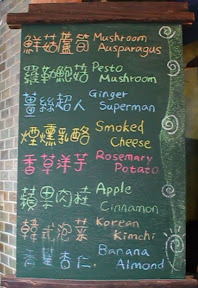 鮮菇蘆筍 Mushroom Ausparagus
羅勒鮑菇 Pesto Mushroom
薑絲超人 Ginger Superman
煙燻乳酪 Smoked Cheese
香草洋芋 Rosemary Potato
蘋果肉桂 Apple Cinnamon
韓式泡菜 Korean Kimchi
香蕉杏仁 Banana Almond